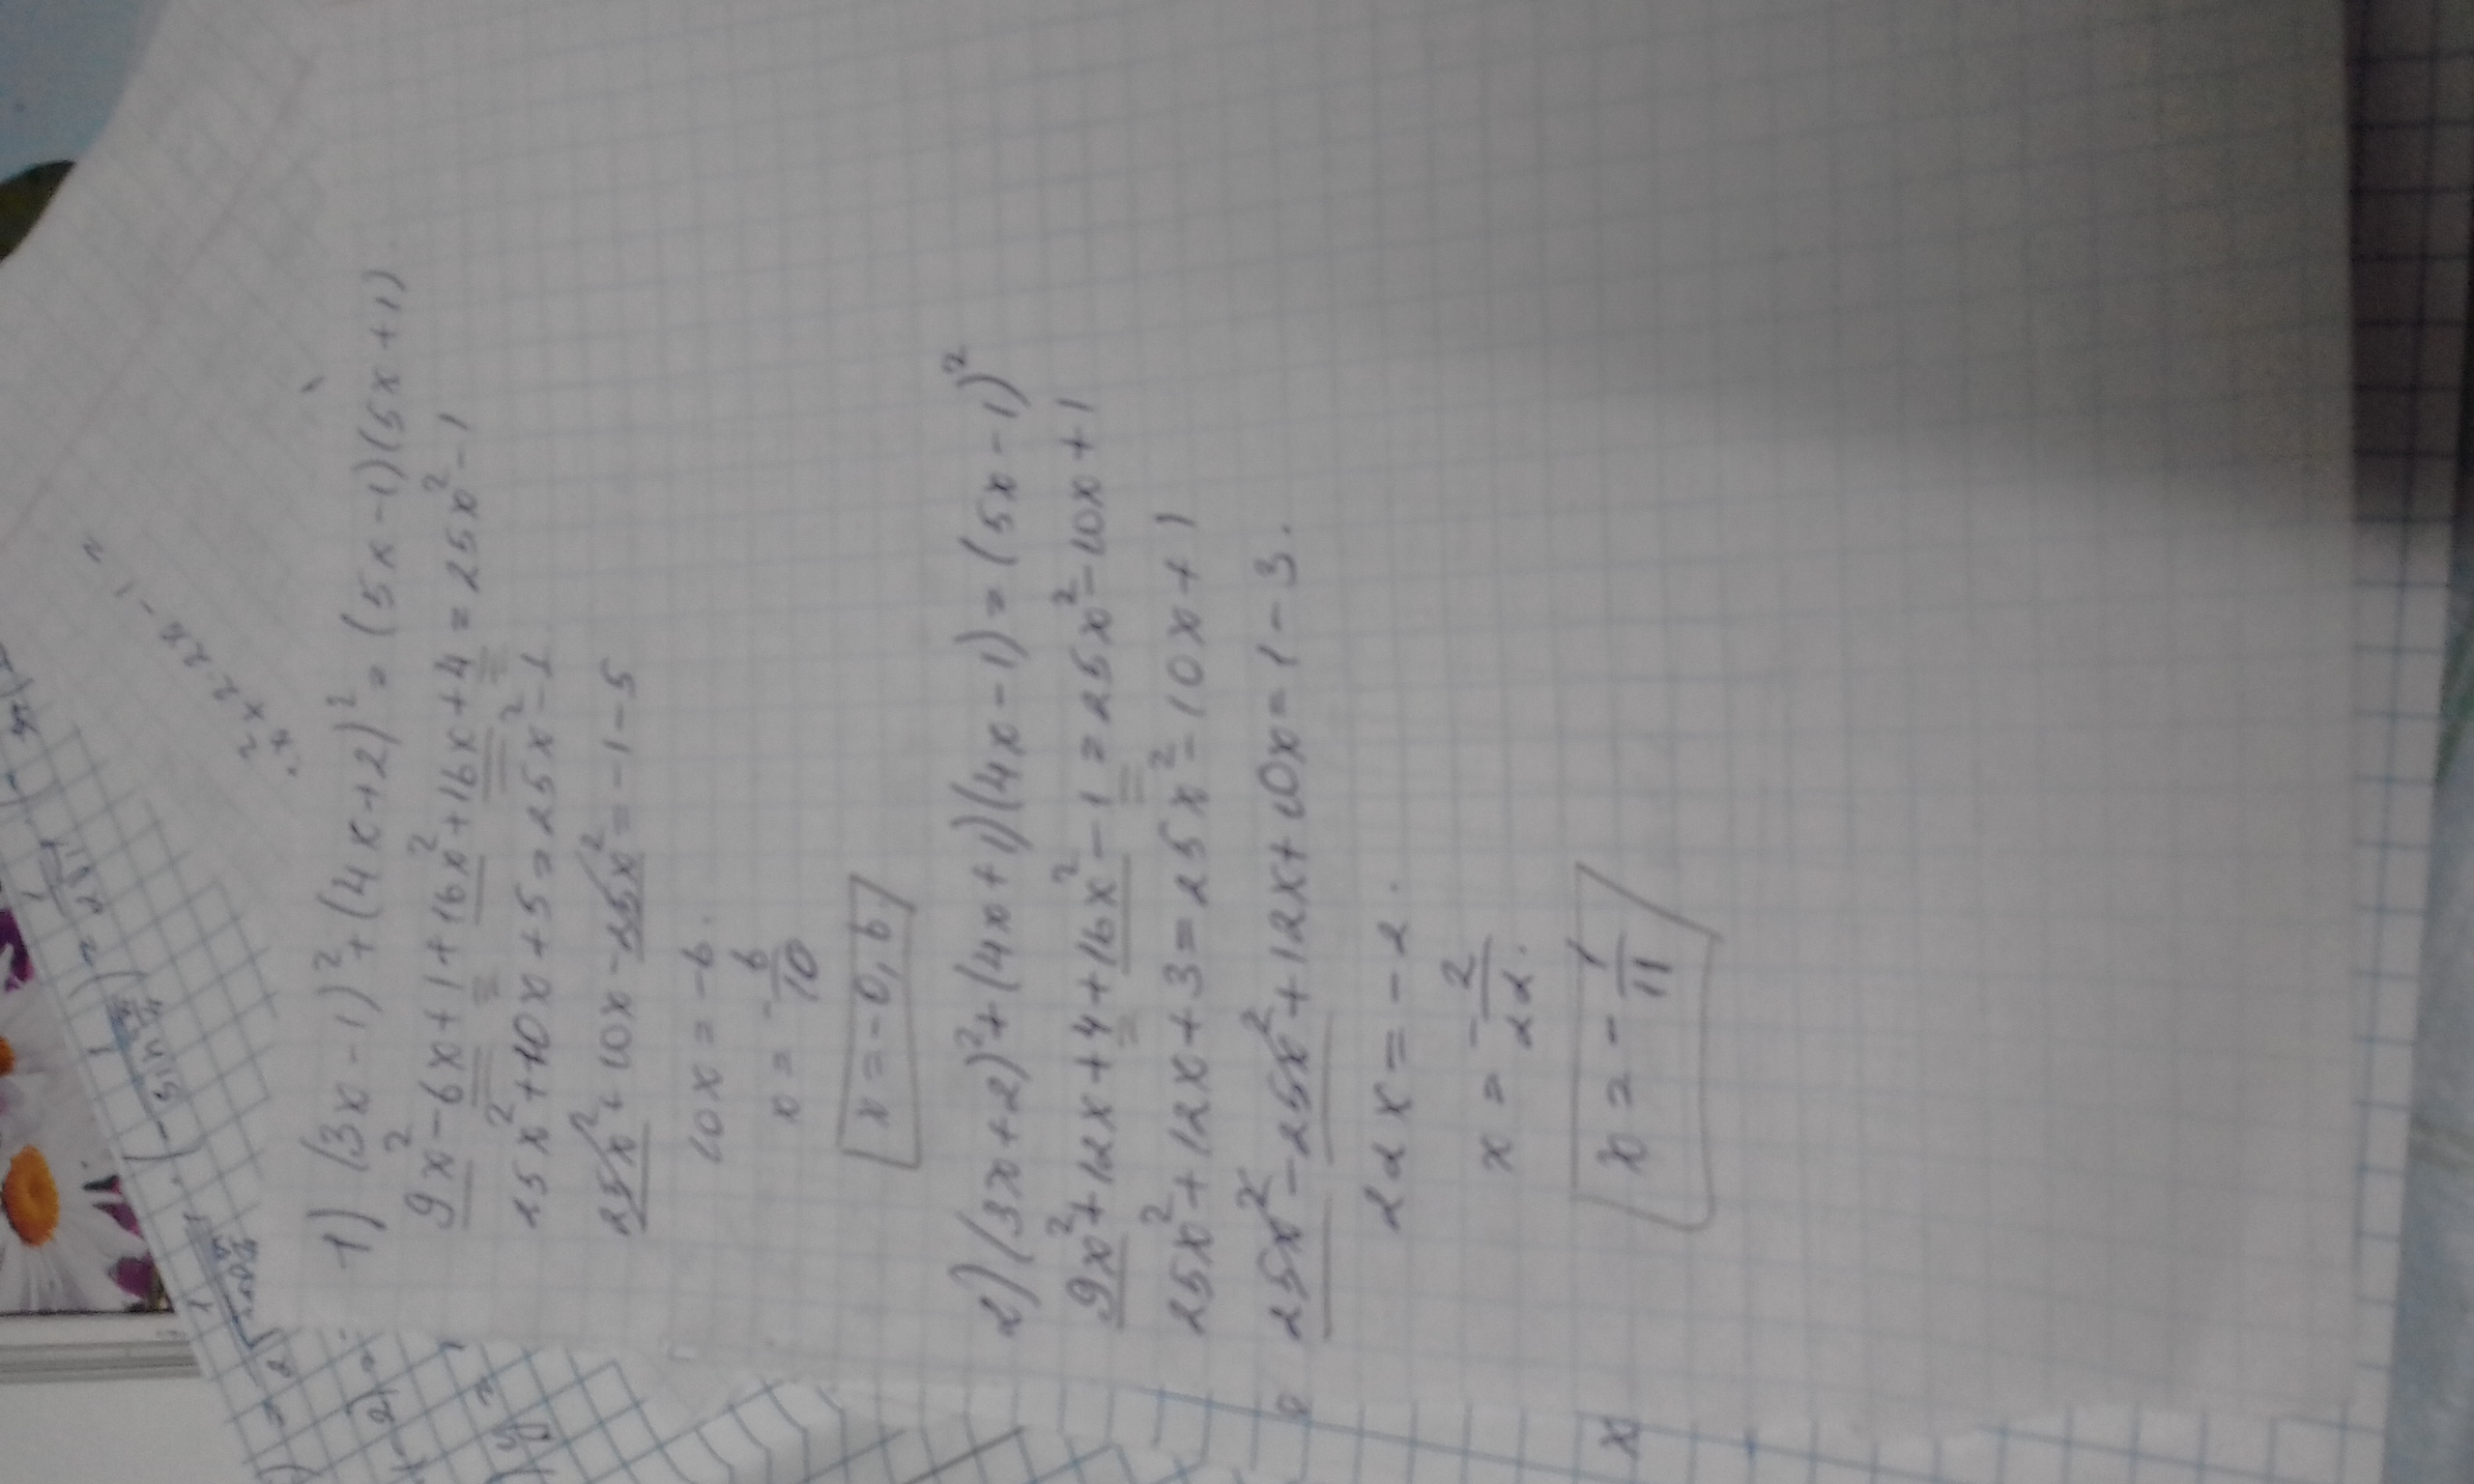 1) (3x-1)²+(4x+2)²=(5x-1)(5x+1).
9x²-6x+1+16x²+16x+4=25x²-1
25x²+10x+5=25x²-1
25x²+10x-25x²=-1-5
10x=-6.
x=-6/10
x=-0,6
2) (3x+2)²+(4x+1)(4x-1)=(5x-1)²
9x²+12x+4+16x²-1=25x²-10x+1
25x²+12x+3=25x²-10x+1
25x²-25x²+12x+10x=1-3.
22x=-2.
x=-2/22.
x=-1/11